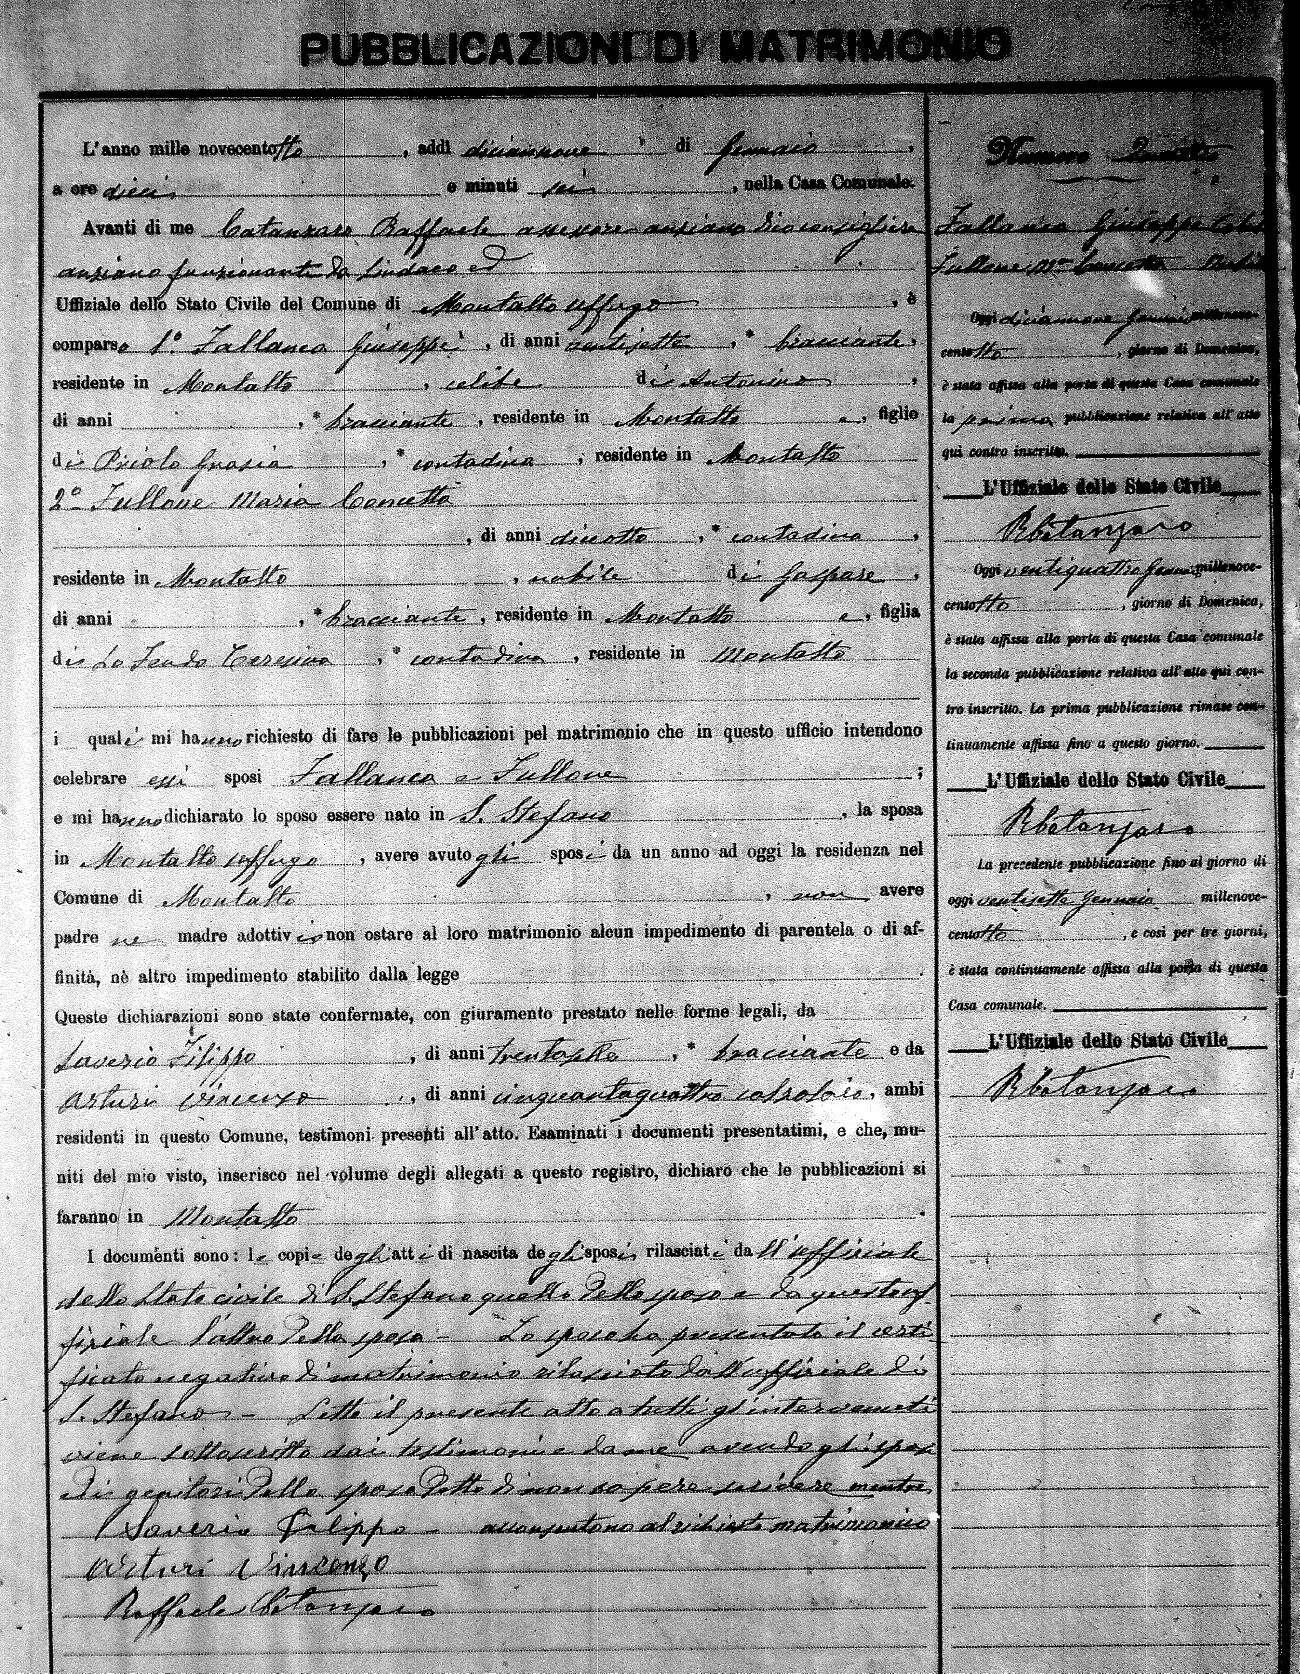 PUBBLICAZIONI DI MATRIMONIO
L'anno mille novecentotto, addì diciannove di Gennaio,
a ore dieci e minuti sei, nella Casa Comunale.
Avanti di me Catanzaro Raffaele assessore anziano consigliere
anziano funzionante da Sindaco ed
Uffiziale dello Stato Civile del Comune di Montalto Uffugo, è
comparso 1º. Fallanca Giuseppe, di anni ventisette, bracciante,
residente in Montalto, celibe di Antonino,
di anni , bracciante, residente in Montalto e, figlio
di Priolo Grazia, contadina, residente in Montalto
2º Fullone Maria Concetta
, di anni diciotto, contadina,
residente in Montalto, nubile di Gaspare,
di anni , bracciante, residente in Montalto e, figlia
di Lo Feudo Teresina, contadina, residente in Montalto
i quali mi hanno richiesto di fare le pubblicazioni pel matrimonio che in questo ufficio intendono
celebrare essi sposi Fallanca e Fullone;
e mi hanno dichiarato lo sposo essere nato in S. Stefano, la sposa
in Montalto Uffugo, avere avuto gli sposi da un anno ad oggi la residenza nel
Comune di Montalto, non avere
padre ne madre adottivi e non ostare al loro matrimonio alcun impedimento di parentela o di af-
finità, nè altro impedimento stabilito dalla legge
Queste dichiarazioni sono state confermate, con giuramento prestato nelle forme legali, da
Saverio Filippo, di anni bracciante e da
Arturi Vincenzo, di anni cinquantaquattro calzolaio, ambi
residenti in questo Comune, testimoni presenti all'atto. Esaminati i documenti presentatimi, e che, mu-
niti del mio visto, inserisco nel volume degli allegati a questo registro, dichiaro che le pubblicazioni si
faranno in Montalto.
I documenti sono: le copie degli atti di nascita degli sposi rilasciati da ll'uffiziale
dello Stato civile di S. Stefano quello dello sposo e da questo uf-
fiziale l'altro della sposa - Lo sposo ha presentato il certi-
ficato negativo di matrimonio rilasciato dall'uffiziale di
S. Stefano - Letto il presente atto a tutti gl'intervenuti
viene sottoscritto dai testimoni e da me avendo gli sposi
ed i genitori della sposa detto di non sapere scrivere mentre
Saverio Filippo - acconsentono al richiesto matrimonio
Arturi Vincenzo
Raffaele Catanzaro
Numero Quattro
Fallanca Giuseppe
Fullone Mª Concetta
Oggi diciannove Gennaio millenove-
centotto, giorno di Domenica,
è stata affissa alla porta di questa Casa comunale
la prima pubblicazione relativa all'atto
qui contro inscritto.
L'Uffiziale dello Stato Civile
RCatanzaro
Oggi ventiquattro Gennaio millenove-
centotto, giorno di Domenica,
è stata affissa alla porta di questa Casa comunale
la seconda pubblicazione relativa all'atto qui con-
tro inscritto. La prima pubblicazione rimase con-
tinuamente affissa fino a questo giorno.
L'Uffiziale dello Stato Civile
RCatanzaro
La precedente pubblicazione fino al giorno di
oggi ventisette Gennaio millenove-
centotto, e così per tre giorni,
è stata continuamente affissa alla porta di questa
Casa comunale.
L'Uffiziale dello Stato Civile
RCatanzaro